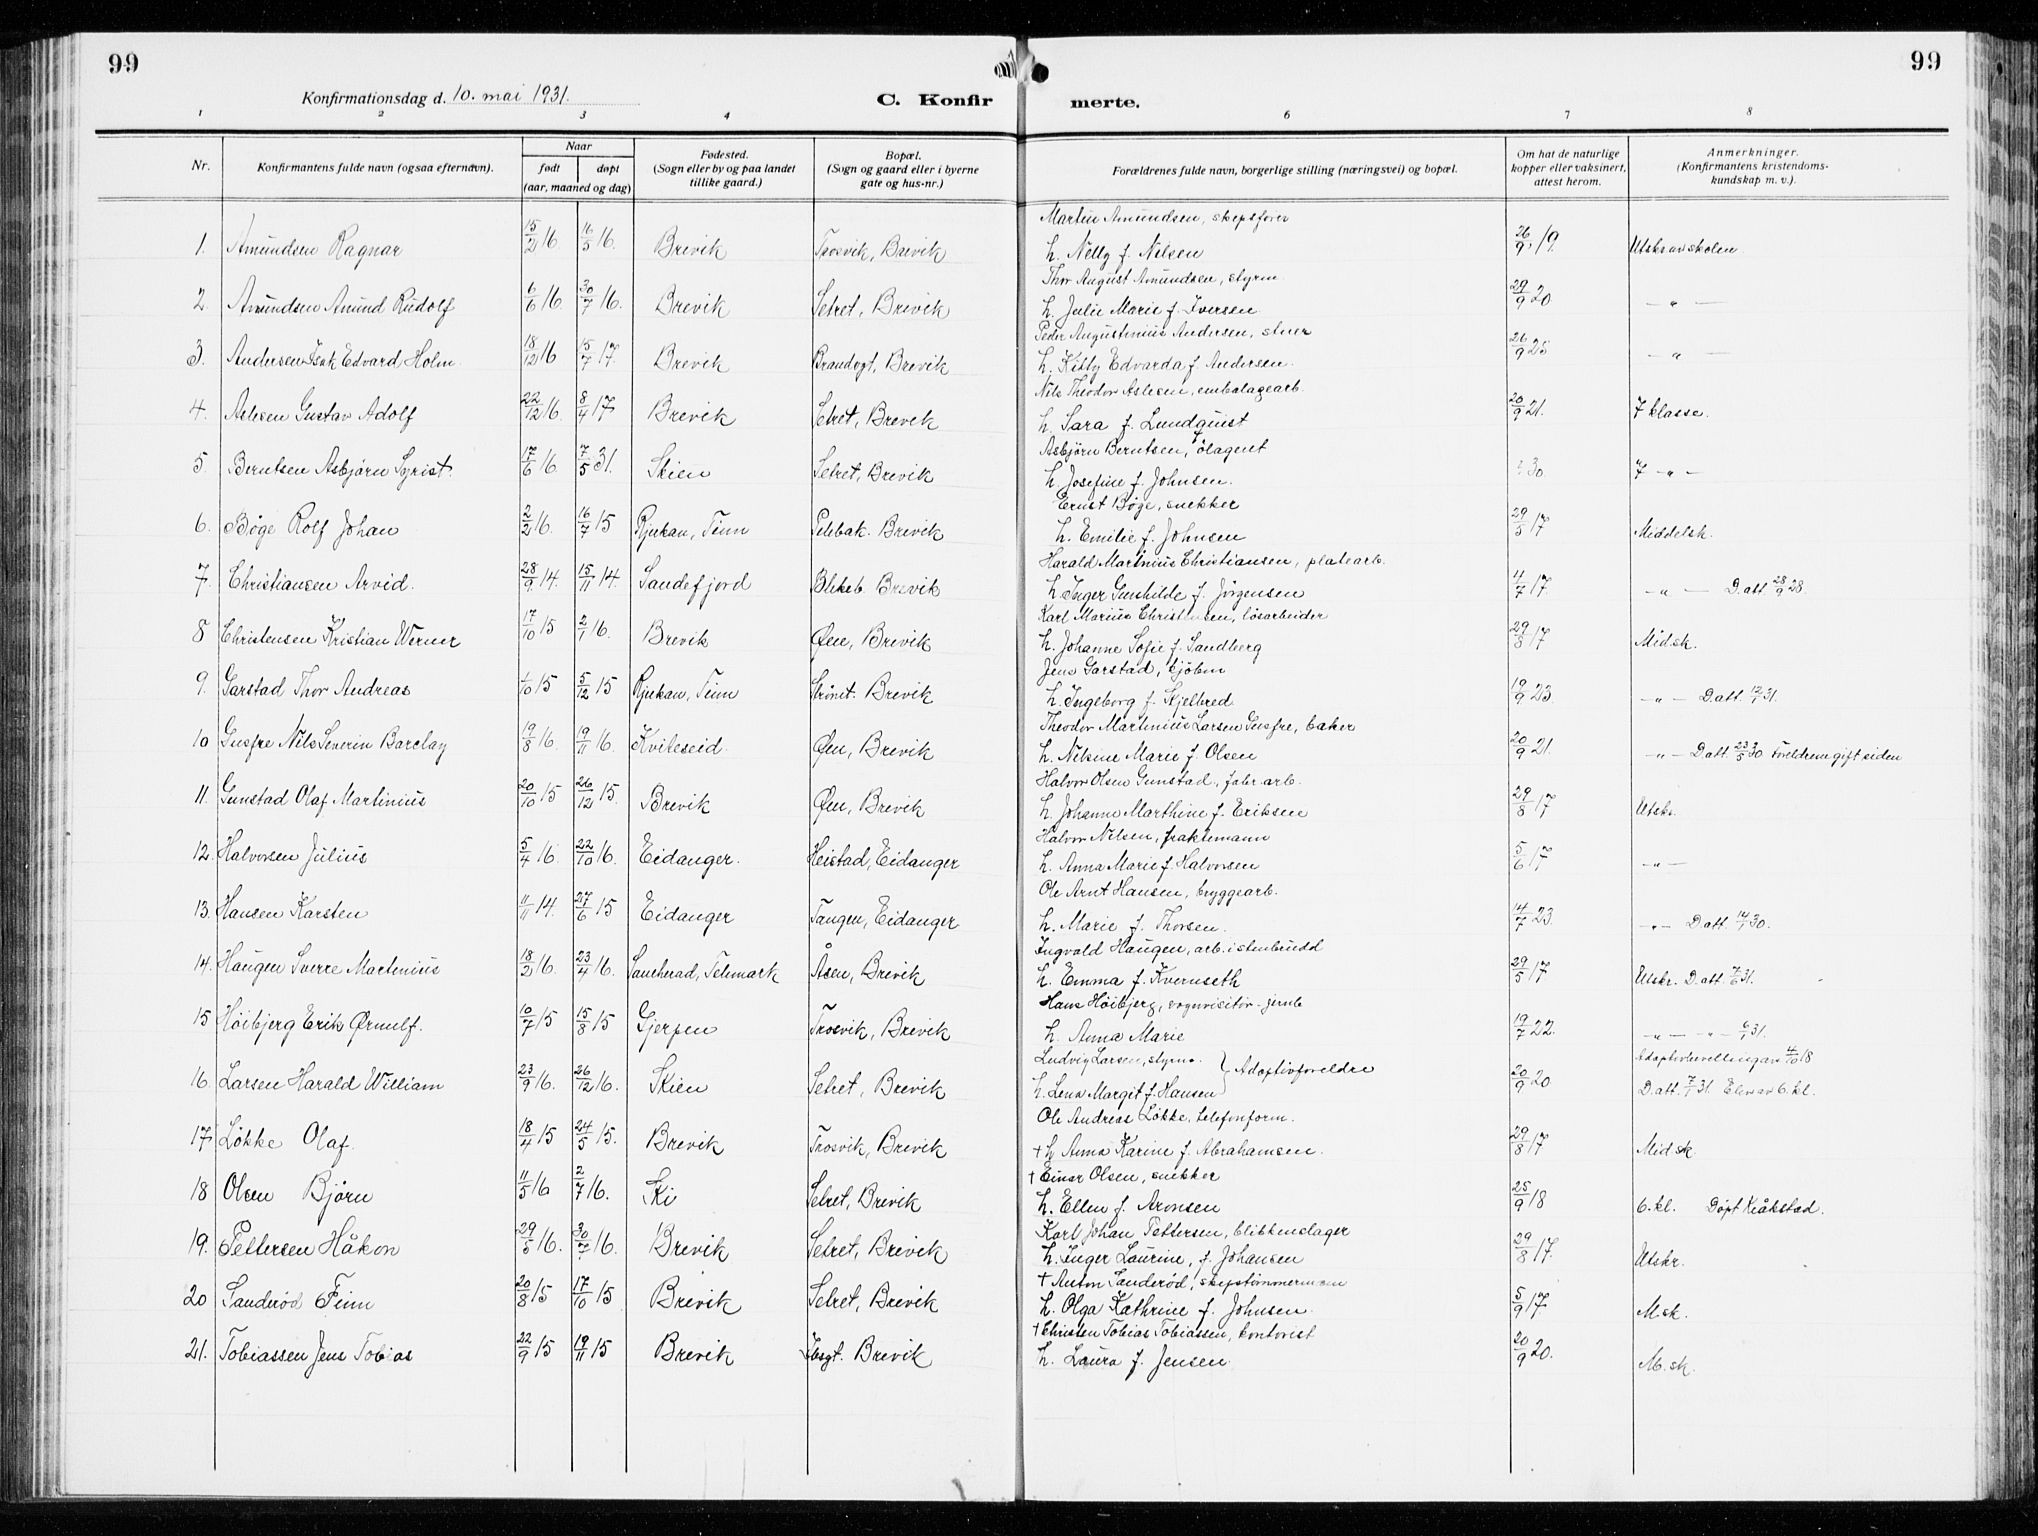 99
99
Konfirmationsdag d. 10. mai 1931.
C. Konfir
merte.
1 2 3 4 6 7 8
Nr. Konfirmantens fulde navn (ogsaa efternavn). Naar født døpt (aar, maaned og dag) Fødested. (Sogn eller by og paa landet tillike gaard.) Bopæl. (Sogn og gaard eller i byerne gate og hus-nr.) Forældrenes fulde navn, borgerlige stilling (næringsvei) og bopæl. Om hat de naturlige kopper eller vaksinert, attest herom. Anmerkninger. (Konfirmantens kristendoms-kundskap m. v.).
Martin Amundsen, skipsfører
1. Amundsen Ragnar 15/2 16. 16/5 16. Brevik Trosvik, Brevik h. Nelly f. Nilsen 26/9 19. Utskr av skolen
Thor August Amundsen, styrm
2 Amundsen Amund Rudolf 6/6 16. 30/7 16. Brevik Setret, Brevik h. Julie Marie f. Iversen 29/9 20 — " —
Peder Augustinius Andersen, stuer
3. Andersen Isak Edvard Holm 18/12 16 15/7 17. Brevik Brandvgt, Brevik h. Kitty Edvarda f. Andersen. 26/9 25 — " —
Nils Theodor Aslesen, embalagearb.
4. Aslesen Gustav Adolf 22/12 16. 8/4 17 Brevik Setret, Brevik h. Sara f. Lundquist 20/9 21. 7 klasse.
Asbjørn Berntsen, ølagent
5. Berntsen Asbjørn Syrist. 17/6 16. 7/5 31. Skien Setret, Brevik h. Josefine f. Johnsen. 30 7 — " —
Ernst Bøge, snekker
6. Bøge Rolf Johan 2/2 16. 16/7 15 Rjukan, Tinn Pelebak. Brevik h. Emilie f. Johnsen 29/5 17 Middelsk.
Harald Martinius Christiansen, platearb.
7. Christiansen Arvid. 28/9 14. 15/11 14 Sandefjord Blekeb. Brevik h. Inger Gunhilde f. Jørgensen 4/7 17. — " — D. att 28/9 28.
Karl Marius Christensen, løsarbeider
8 Christensen Kristian Werner 17/10 15 2/1 16. Brevik Øen, Brevik h. Johanne Sofie f. Sandberg 29/8 17 Midsk.
Jens Garstad, sjøbm
9. Garstad Thor Andreas 1/10 15 5/12 15 Rjukan, Tinn Strinit. Brevik h. Ingeborg f. Skjelbred 19/9 23. — " — D att 12/1 31.
Theodor Martinius Larsen Gusfre, baker
10 Gusfre Nils Severin Barclay 19/8 16. 19/11 16. Kviteseid. Øen, Brevik h. Nilsine Marie f. Olsen 20/9 21. — " — D att 23/5 30 Foreldrene gift siden
Halvor Olsen Gunstad, fabr. arb.
11. Gunstad Olaf Martinius 20/10 15 26/12 15. Brevik Øen, Brevik h. Johanne Marthine f. Eriksen 29/8 17 Utskr.
Halvor Nilsen, fraktemann
12. Halvorsen Julius 5/4 16. 22/10 16. Eidanger. Heistad, Eidanger h. Anna Marie f. Halvorsen 5/6 17 — " —
Ole Arnt Hansen, bryggearb.
13. Hansen Karsten 11/11 14. 27/6 15 Eidanger Tangen, Eidanger h. Marie f. Thorsen. 14/7 23. — " — D att. 14/1 30.
Ingvald Haugen, arb. i stenbrudd
14. Haugen Sverre Martinius 18/2 16. 23/4 16. Sauherad, Telemark Åsen, Brevik h. Emma f. Kvernseth 29/5 17 Utskr. D. att. 7/6 31.
Hans Høibjerg, vognvisitør - jernb
15 Høibjerg Erik Ørnulf. 10/7 15 15/8 15 Gjerpen Trosvik, Brevik h. Anna Marie 19/7 22. — " — — " — 6/1 31.
Ludvig Larsen, styrm. Adoptivforeldre Adoptivbevillingav 4/10 18
16. Larsen Harald William 23/9 16. 26/12 16. Skien Setret, Brevik h. Lena Margit f. Hansen 20/9 20 D. att. 7/1 31. Elev av 6. kl.
Ole Andreas Løkke, telefonform.
17 Løkke Olaf. 18/4 15 24/5 15. Brevik Trosvik, Brevik + h Anna Karine f. Abrahamsen. 29/8 17 Midsk.
+ Einar Olsen, snekker
18 Olsen Bjørn 11/5 16 2/7 16. Ski Setret, Brevik h. Ellen f. Aronsen 25/9 18 6. kl. Døpt Kråkstad.
Karl Johan Pettersen, blikkenslager
19. Pettersen Håkon 29/5 16. 30/7 16. Brevik Setret, Brevik h. Inger Laurine, f. Johansen 29/8 17. Utskr.
+ Anton Sanderød, skipstømmermann
20 Sanderød Finn 20/8 15 17/10 15 Brevik Setret, Brevik h. Olga Kathrine f. Johnsen. 5/9 17 M. sk.
+ Christen Tobias Tobiassen, kontorist
21. Tobiassen Jens Tobias 22/9 15 19/11 15 Brevik Brevik h. Laura f. Jensen 20/9 20. M. sk.